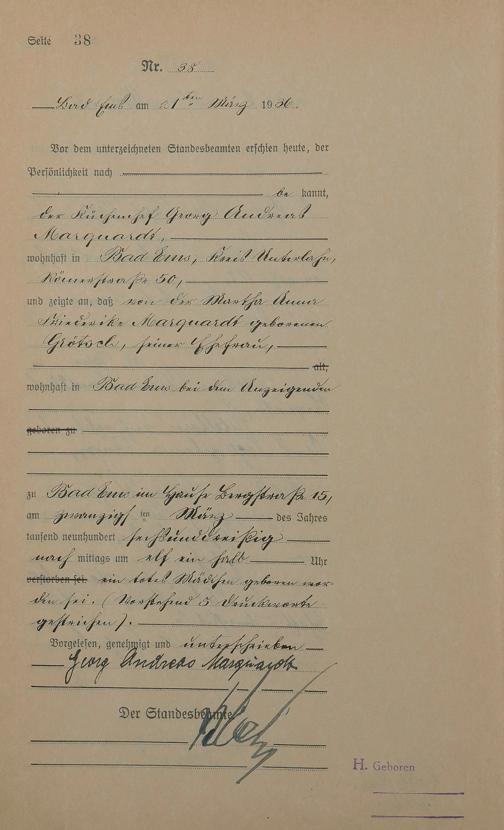 Seite 38
Nr. 38
Bad Ems am 21ten März 1936.
Vor dem unterzeichneten Standesbeamten erschien heute, der
Persönlichkeit nach
be kannt,
der Küchenchef Georg Andreas
Marquardt,
wohnhaft in Bad Ems, Kreis Unterlahn,
Römerstraße 50,
und zeigte an, daß von der Martha Anna
Friederike Marquardt geborenen
Grötsch, seiner Ehefrau,
alt,
wohnhaft in Bad Ems bei dem Anzeigenden
geboren zu
zu Bad Ems im Hause Bergstraße 15,
am zwanzigsten März des Jahres
tausend neunhundert sechsunddreißig
nach mittags um elf ein halb Uhr
verstorben sei. ein totes Mädchen geboren wor
den sei. (Vorstehend 5 Druckworte
gestrichen).
Vorgelesen, genehmigt und unterschrieben
Georg Andreas Marquardt
Der Standesbeamte
H. Geboren